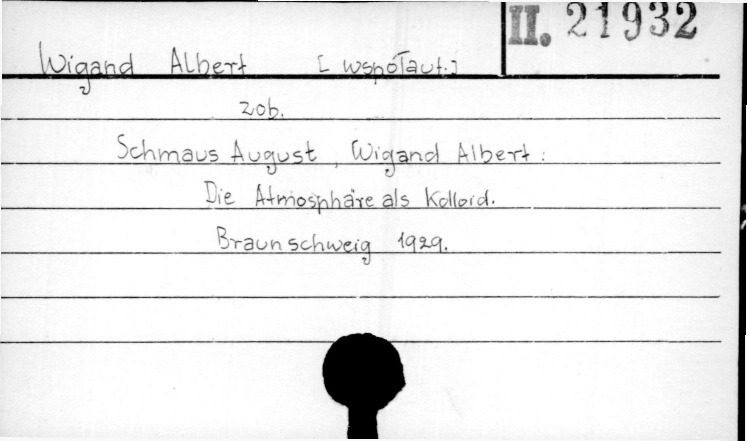 II. 21932
Wigand Albert [współaut.]
zob.
Schmaus August, Wigand Albert:
Die Atmosphäre als Kolloid.
Braunschweig 1929.